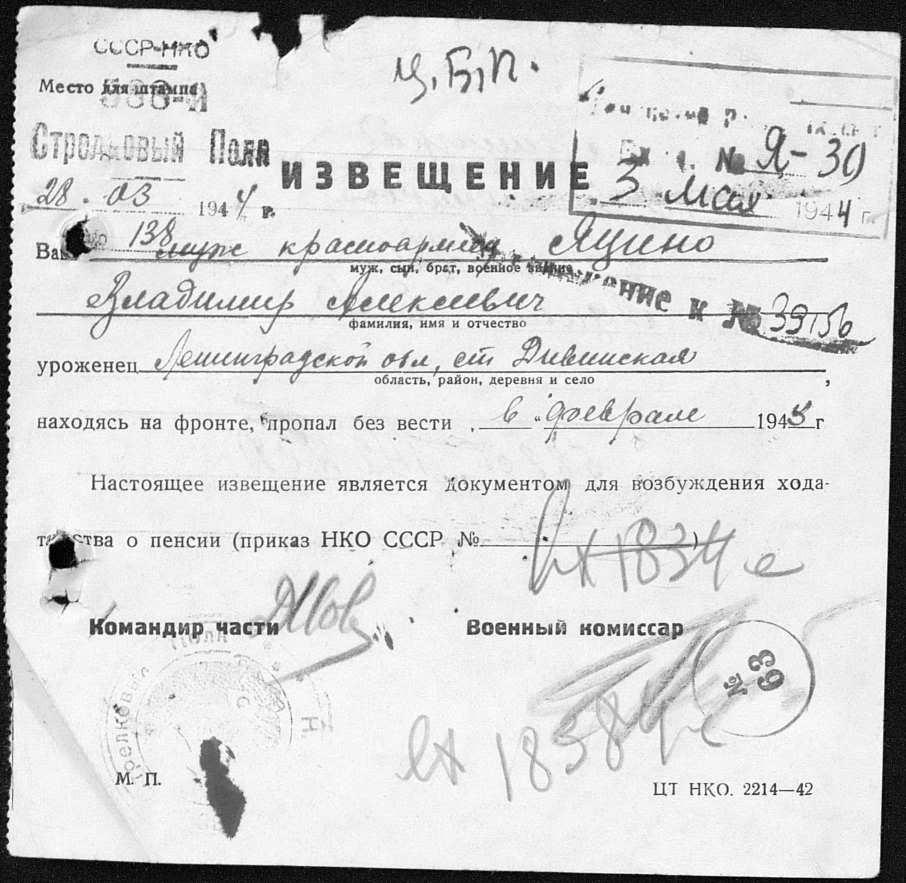 СССР-НКО
Место для штампа
Стрелковый Полк
28. 03 1944 г.
№ 138
Ц.Б.П.
Вх. № Я-30
3 мая 1944 г.
ИЗВЕЩЕНИЕ
Ваш муж красноармеец Яцино
муж, сын, брат, военное звание
Владимир Алексеевич
фамилия, имя и отчество
к № 39156
уроженец Ленинградской обл, ст Дивинская
область, район, деревня и село
находясь на фронте, пропал без вести, в „феврале 1943 г
Настоящее извещение является документом для возбуждения хода-
тайства о пенсии (приказ НКО СССР № )
вх 1834 с
Командир части
Военный комиссар
№ 63
вх 18384
М. П.
ЦТ НКО. 2214—42